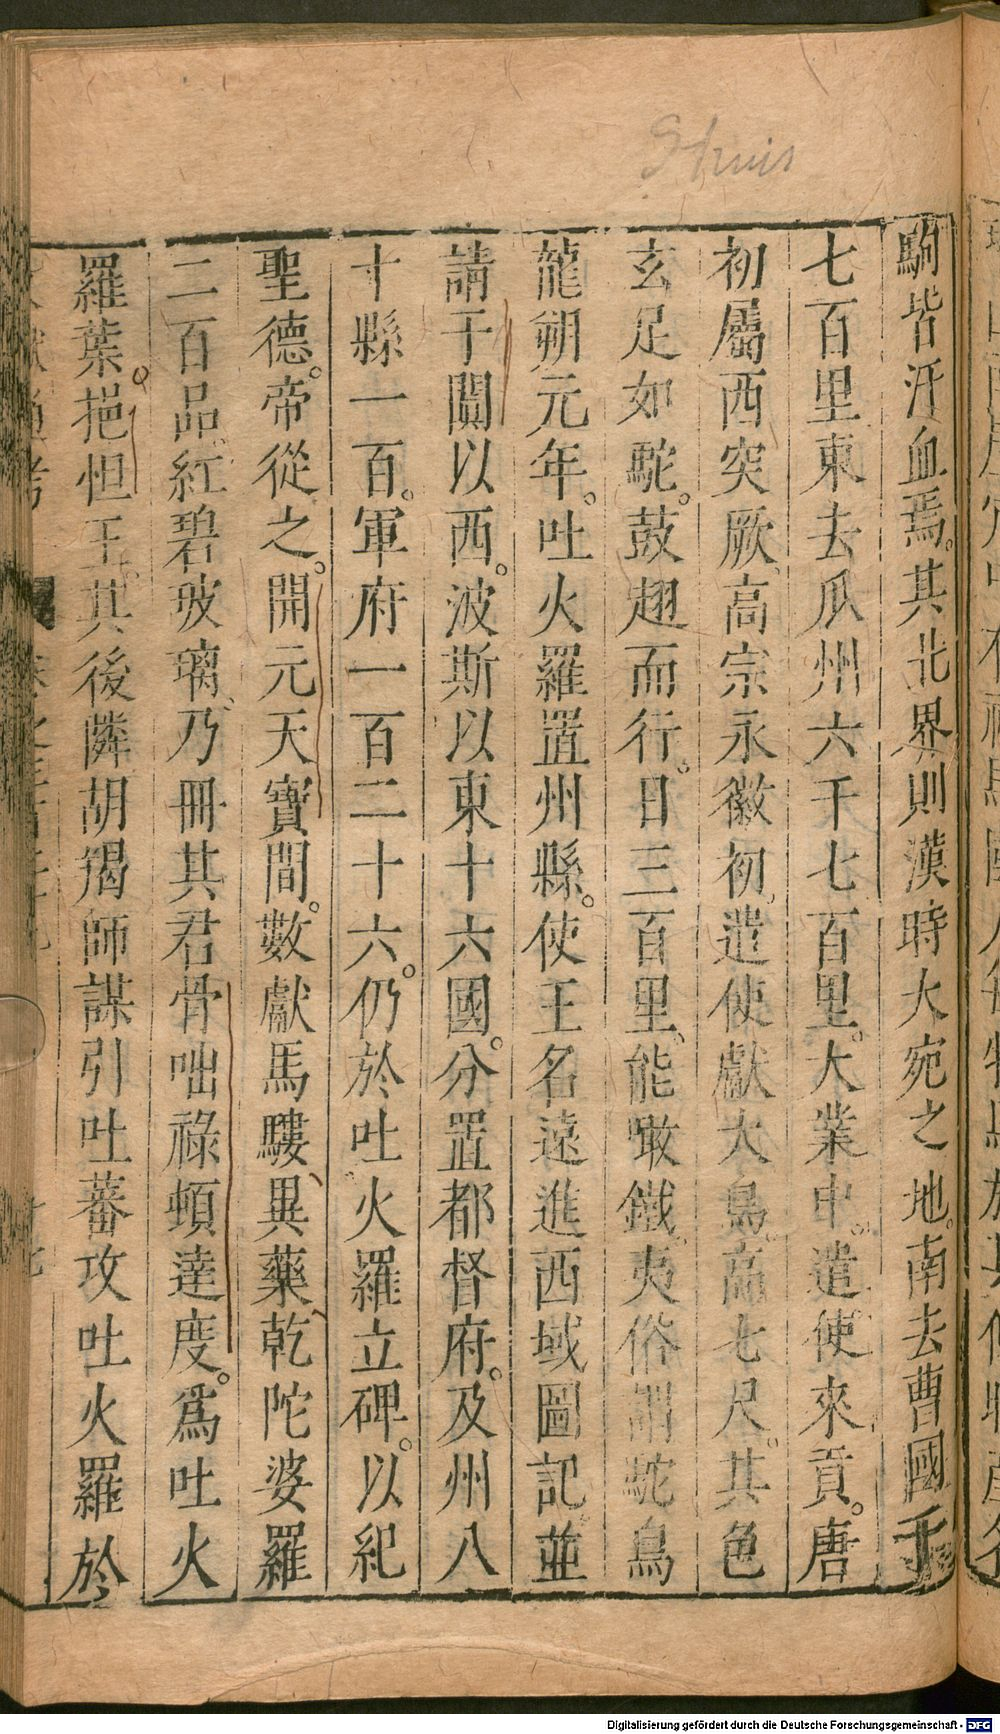 駒皆汗血焉。其北界則漢時大宛之地。南去曹國千
七百里東去瓜州六千七百里。大業中。遣使來貢。唐
初屬西突厥、高宗永徽初、遣使獻大鳥。高七尺。其色
玄足如駝。鼓翅而行。日三百里、能噉鐵。夷俗謂駝鳥
龍朔元年。吐火羅置州縣。使王名遠進西域圖記。並
請于闐以西。波斯以東十六國。分置都督府。及州八
十縣一百。軍府一百二十六。仍於吐火羅立碑。以紀
聖德。帝從之。開元天寶間。數獻馬騾、異藥、乾陀婆羅
二百品、紅碧玻璃、乃冊其君骨咄祿頓達度。爲吐火
羅葉。挹怛王。其後隣胡羯師謀引吐蕃攻吐火羅於
Digitalisierung gefördert durch die Deutsche Forschungsgemeinschaft - DFG